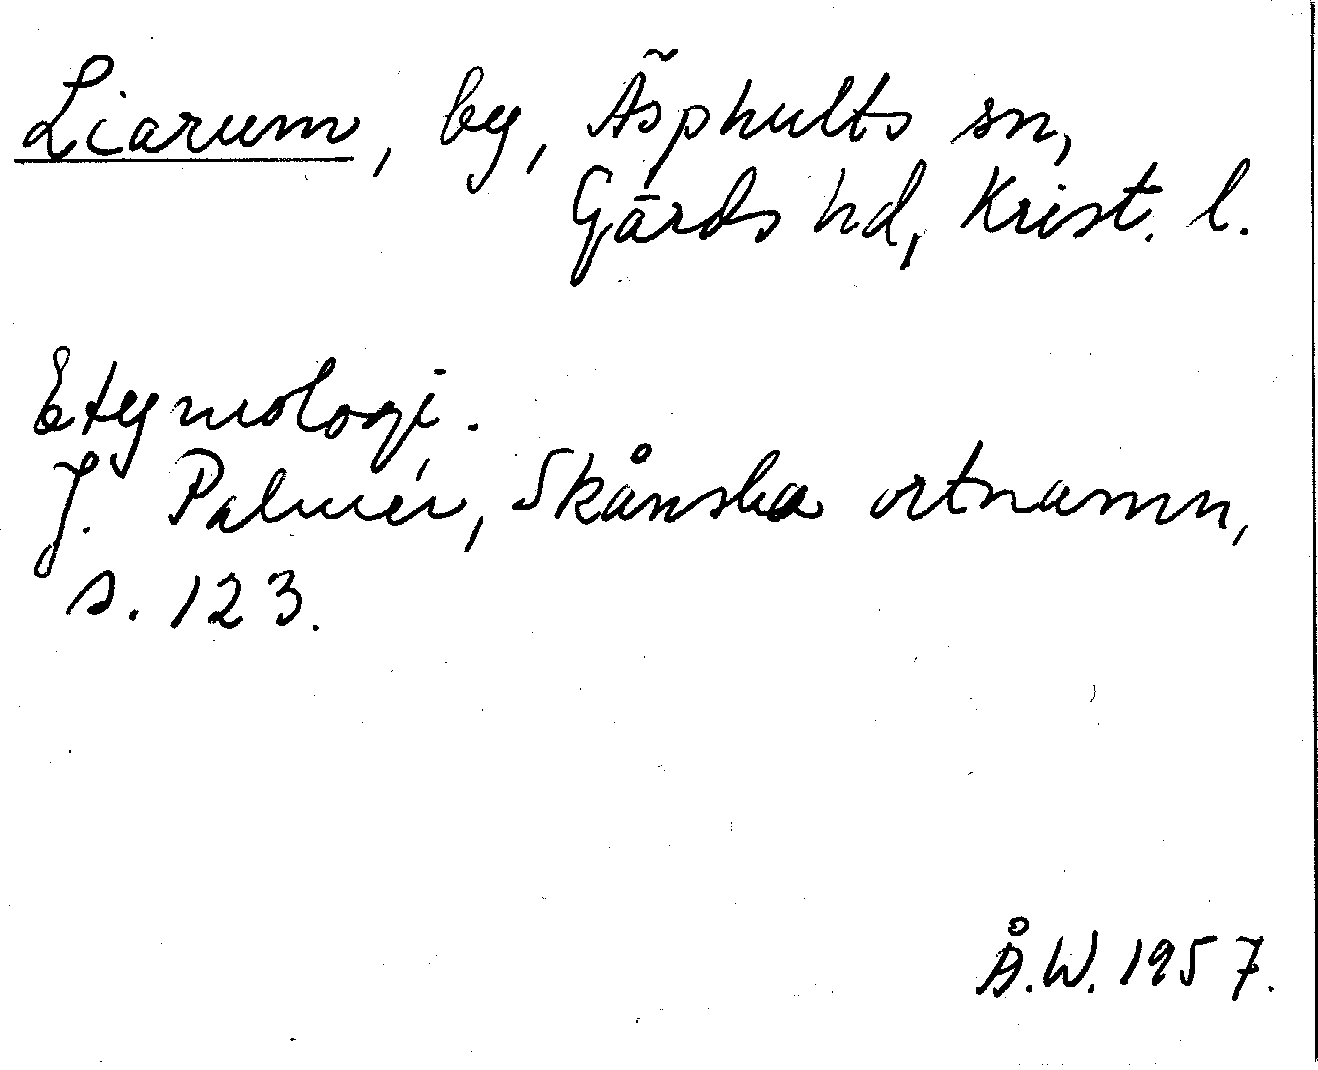 Liarum, by, Äsphults sn,
Gärds hd, Krist. l.
Etymologi.
J. Palmér, Skånska ortnamn,
s. 123.
Å.W. 1957.